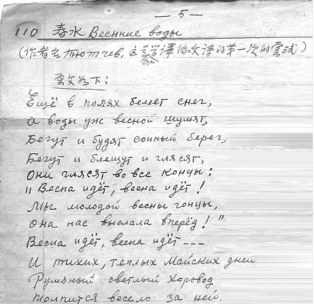 — 5 —
110 春水 Весенние воды
(作者为Тютчев, 这是学译的文语的第一次的尝试)
原文如下:
Ещё в полях белеет снег,
А воды уж весной шумят,
Бегут и будят сонный берег,
Бегут и блещут и глясят,
Они глясят во все концы:
"Весна идёт, весна идёт!
Мы молодой весны гонцы,
Она нас выслала вперёд!"
Весна идёт, весна идёт ---
И тихих, тёплых Майских дней
Румяный светлый Хоровод
Толпится весело за ней.